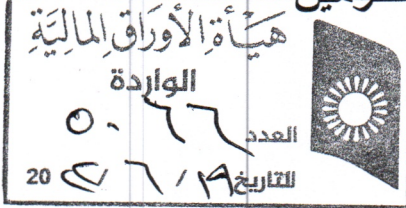 هَيْأَةُ الأَوْرَاقِ المَالِيَّةِ
الواردة
العدد ٥٠٦٦
التاريخ ١٩ / ٦ / 20